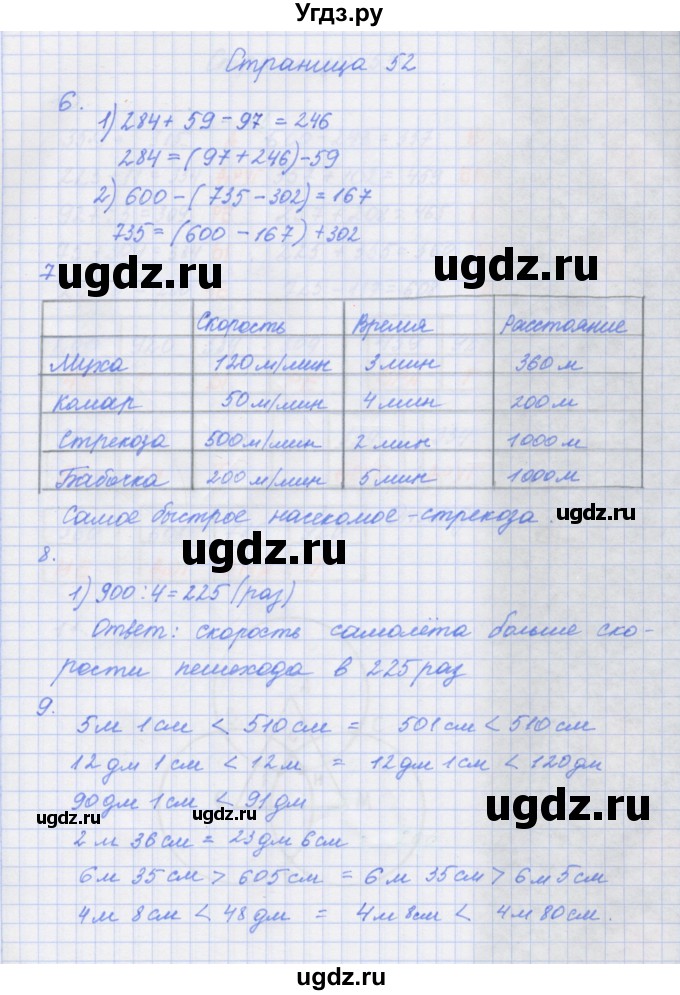 Угдз.ру
Страница 52
6.
1) 284 + 59 - 97 = 246
284 = (97 + 246) - 59
2) 600 - (735 - 302) = 167
735 = (600 - 167) + 302
7
ugdz.ru ugdz.ru
Скорость Время Расстояние
Муха 120 м/мин 3 мин 360 м
Комар 50 м/мин 4 мин 200 м
Стрекоза 500 м/мин 2 мин 1000 м
Бабочка 200 м/мин 5 мин 1000 м
Самое быстрое насекомое - стрекоза. ugdz.ru
8. ugdz.ru
1) 900 : 4 = 225 (раз)
Ответ: скорость самолёта больше ско-
рости пешехода в 225 раз
9.
5 м 1 см < 510 см = 501 см < 510 см
12 дм 1 см < 12 м = 12 дм 1 см < 120 дм
90 дм 1 см < 91 дм
ugdz.ru ugdz.ru
2 м 36 см = 23 дм 6 см
6 м 35 см > 605 см = 6 м 35 см > 6 м 5 см
4 м 8 см < 48 дм = 4 м 8 см < 4 м 80 см.
ugdz.ru